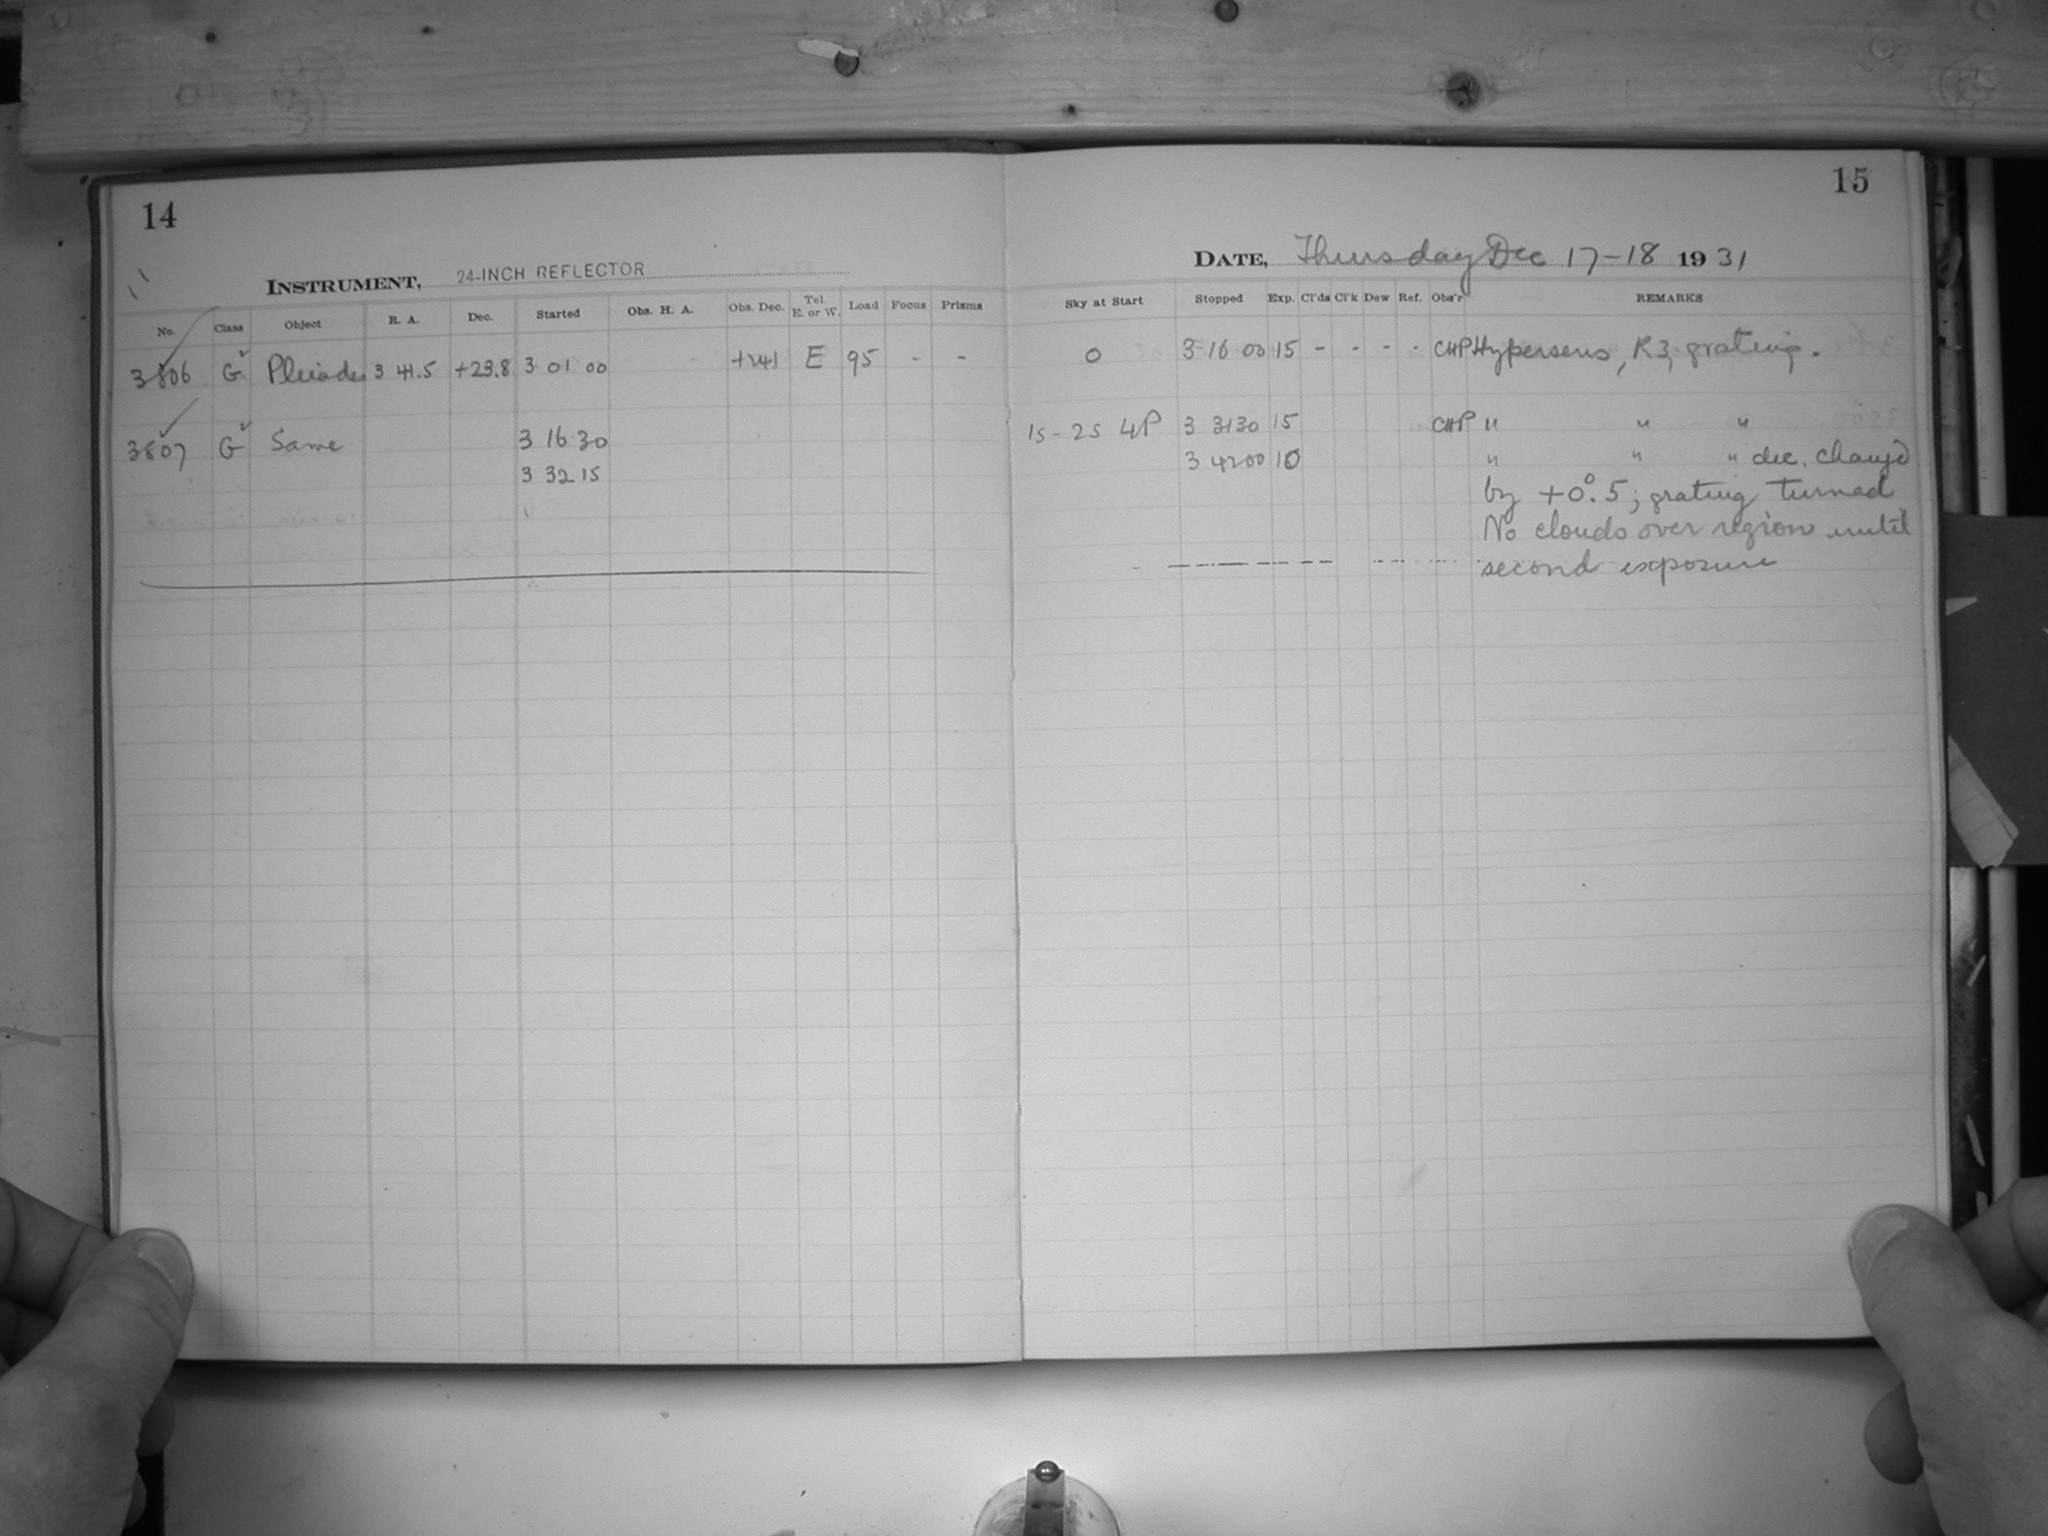 14
15
INSTRUMENT, 24-INCH REFLECTOR
DATE, Thursday Dec 17-18 1931
No. Class Object R. A. Dec. Started Obs. H. A. Obs. Dec. Tel. E. or W. Load Focus Prisms Sky at Start Stopped Exp. Cl'ds Cl'k Dew Ref. Obs'r REMARKS
3806 G Pleiades 3 41.5 +23.8 3 01 00 +241 E 95 - - 0 3 16 00 15 - - - - CHP Hypersens, R3, grating.
3807 G Same 3 16 30 1s-2s 4P 3 31 30 15 CHP " " "
3 32 15 3 42 00 10 " " " dec. changed
by +0°.5; grating turned
No clouds over region until
second exposure